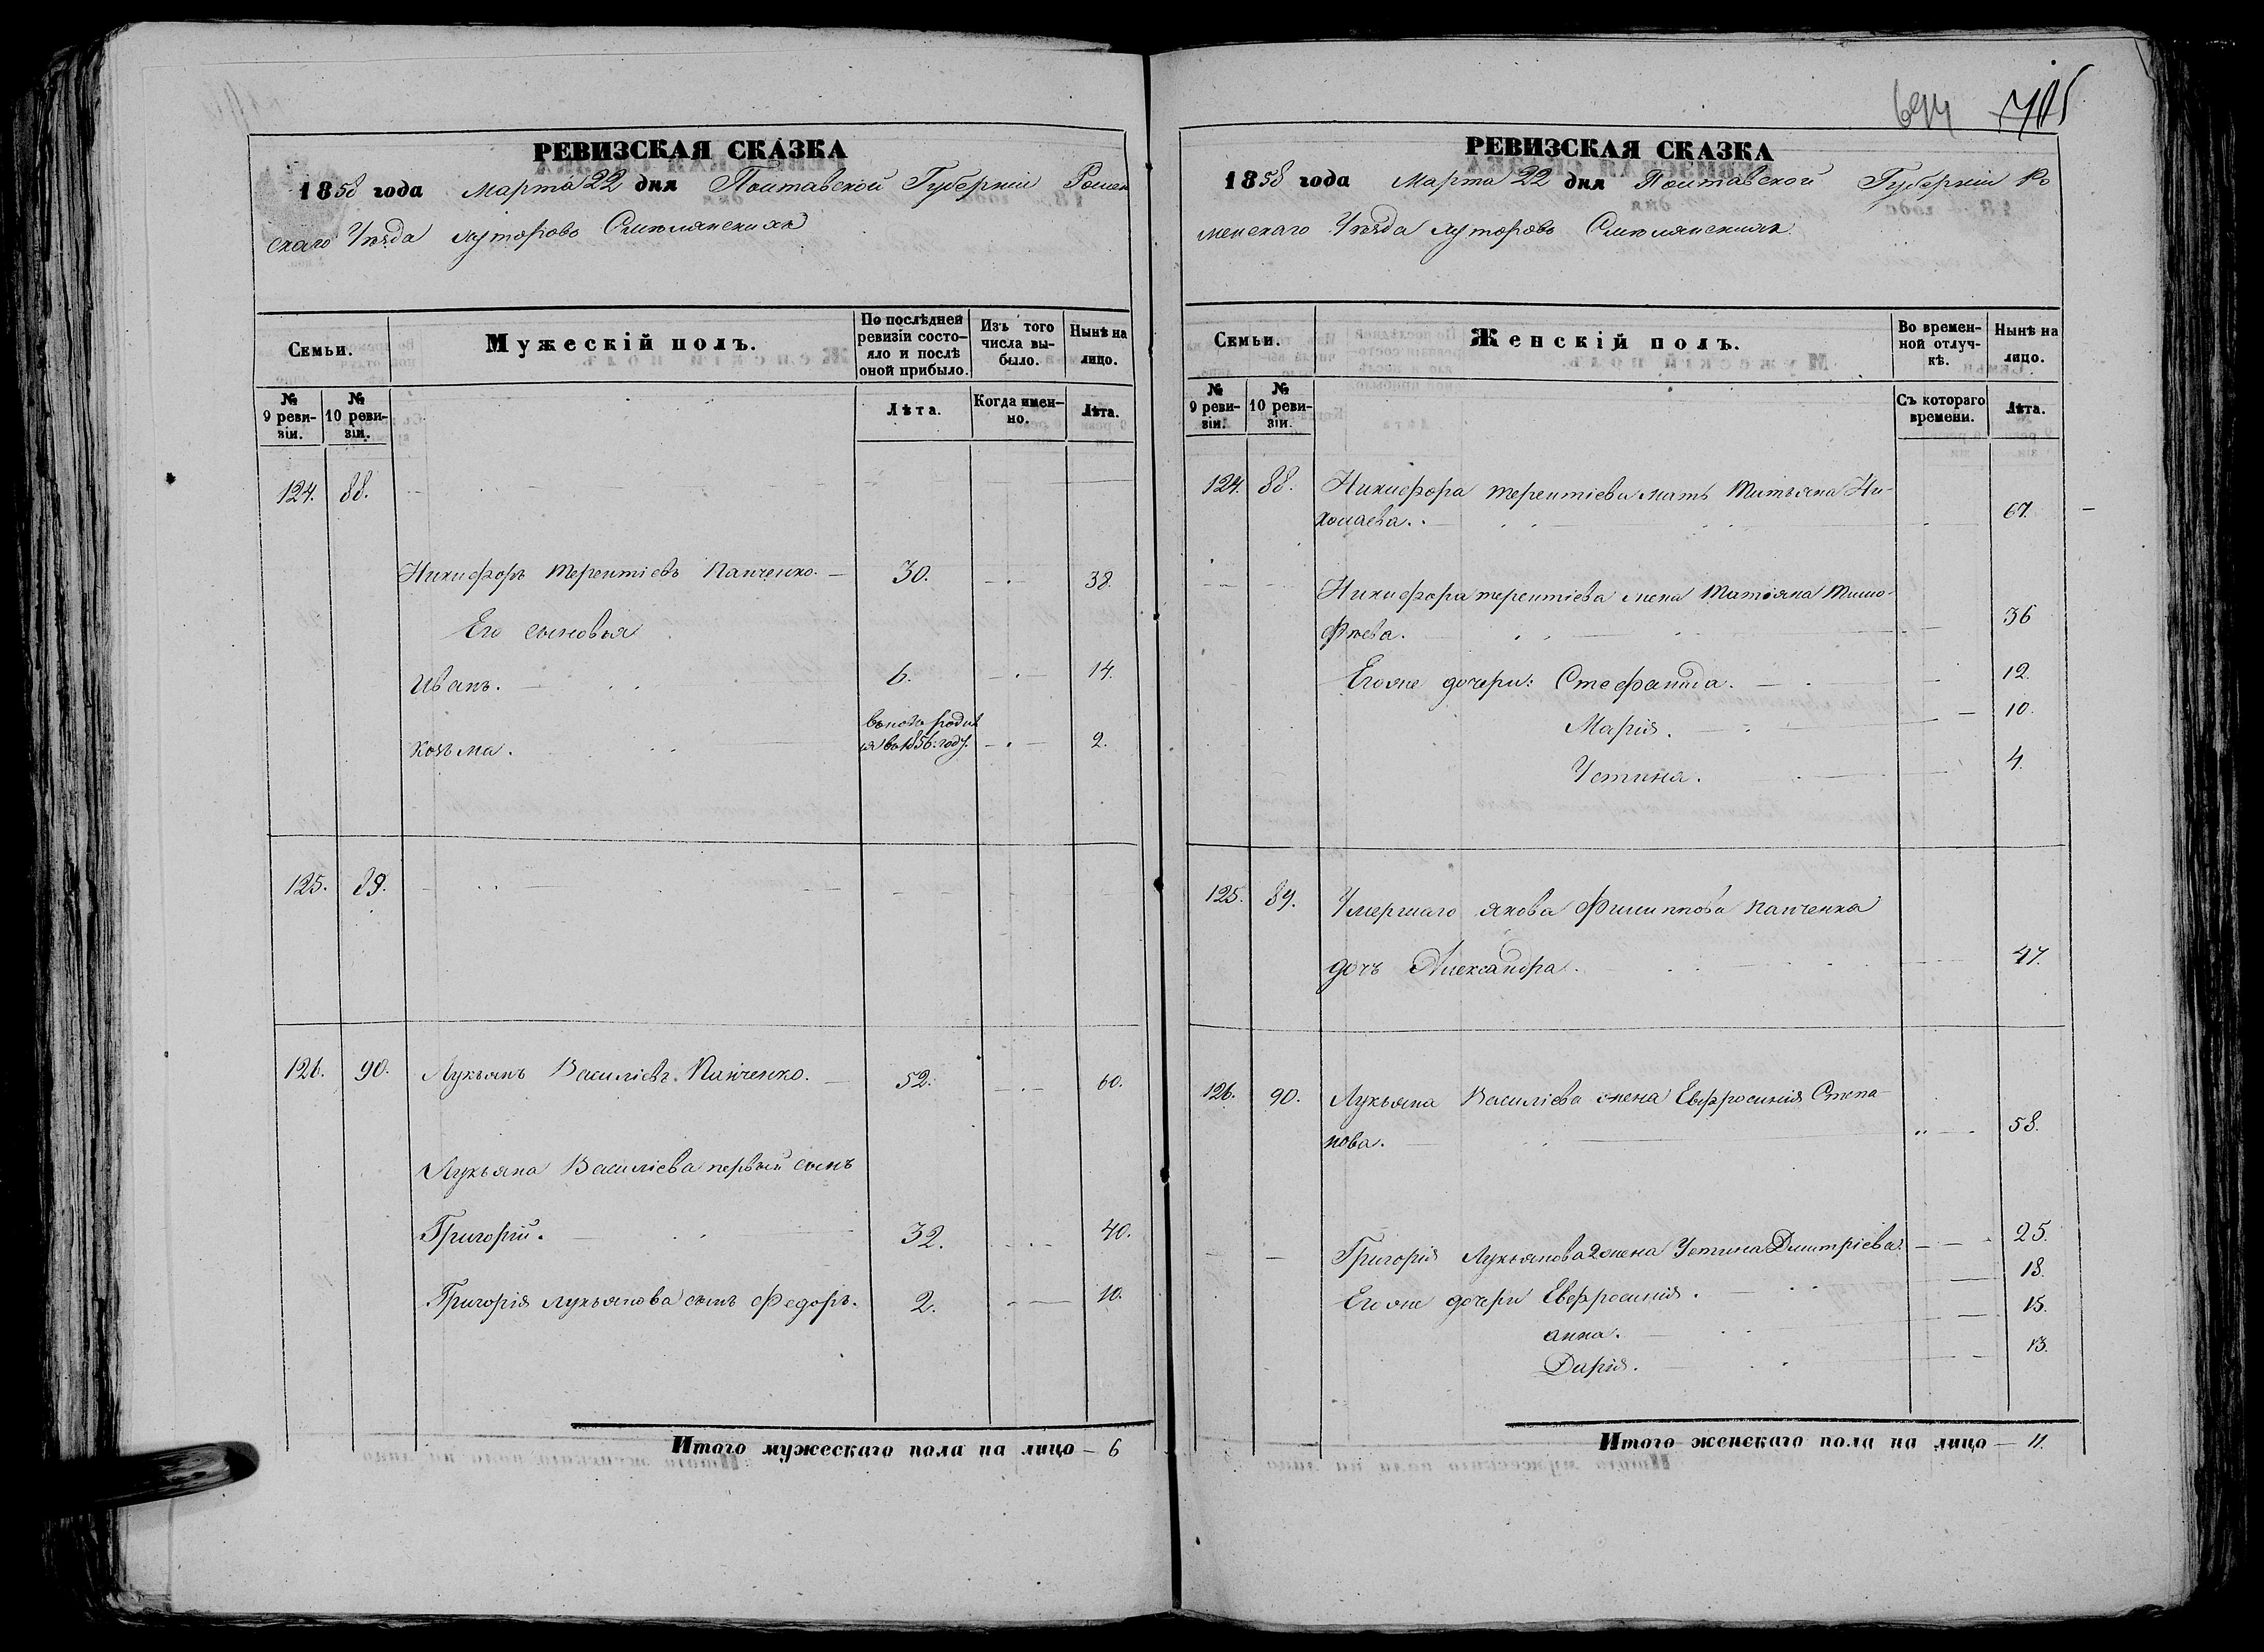 РЕВИЗСКАЯ СКАЗКА
1858 года Марта 22 дня Полтавской Губерніи Ромен
скаго Уѣзда хуторовъ Смѣлянскихъ
Семьи.
Мужескій полъ.
По послѣдней ревизіи состо-
яло и послѣ оной прибыло.
Изъ того числа вы-
было.
Ныне на лицо.
№ 9 реви-
зіи.
№ 10 реви-
зіи.
Лѣта.
Когда имен-
но.
Лѣта.
124. 88.
Никифоръ Терентіевъ Панченко. 30. 38.
Его сыновья
Иванъ. 6. 14.
вновь родил
ся въ 1856. году.
Козьма. 2.
125. 89.
126. 90. Лукьянъ Василіевъ Панченко. 52. 60.
Лукьяна Василіева первый сынъ
Григорій. 32. 40.
Григорія Лукьянова сынъ Федоръ. 2. 10.
Итого мужескаго пола на лицо – 6
694 705
РЕВИЗСКАЯ СКАЗКА
1858 года Марта 22 дня Полтавской Губерніи Ро
менскаго Уѣзда хуторовъ Смѣлянскихъ
Семьи.
Женскій полъ.
Во времен-
ной отлуч-
кѣ.
Нынѣ на лицо.
№ 9 реви-
зіи.
№ 10 реви-
зіи.
Съ котораго времени.
Лѣта.
124. 88. Никифора Терентіева мать Татьяна Ни-
колаева. 67.
Никифора Терентіева жена Татьяна Тимо-
фѣева. 36
Его же дочери: Стефанида. 12.
Марія. 10.
Устина. 4.
125. 89. Умершаго Якова Филиппова Панченка
дочь Александра. 47.
126. 90. Лукьяна Василіева жена Евфросинія Степа-
нова. 58.
Григорія Лукьянова 2 жена Устина Дмитріева. 25.
Его же дочери Евфросинія. 18.
Анна. 15.
Дарія. 13.
Итого женскаго пола на лицо – 11.